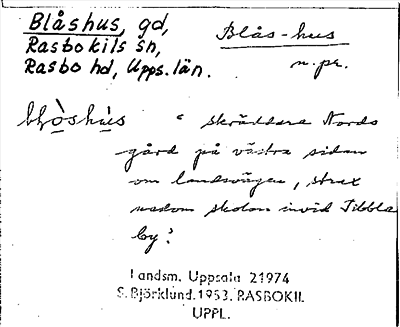 Blåshus, gd,
Rasbokils sn,
Rasbo hd, Upps. län.
Blås-hus
n. pr.
"skräddare Nords
gård på västra sidan
om landsvägen, strax
nedom skolan invid Tibbla
by."
Landsm. Uppsala 21974
S. Björklund. 1953. RASBOKIL
UPPL.